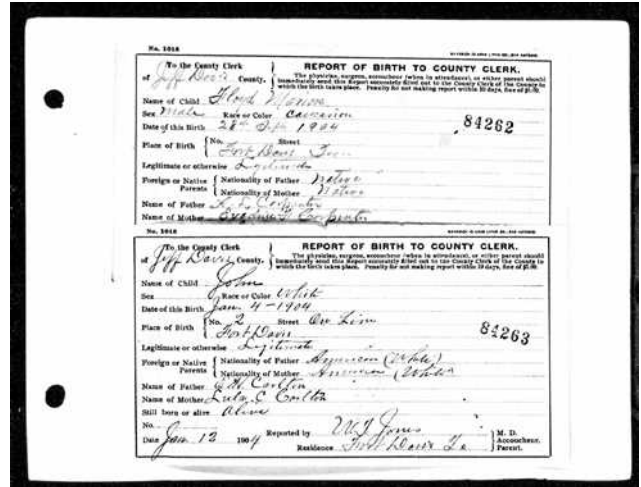 No. 1016
To the County Clerk
of Jeff Davis County.
REPORT OF BIRTH TO COUNTY CLERK.
The physician, surgeon, accoucheur (when in attendance), or either parent should
immediately send this Report accurately filled out to the County Clerk of the County in
which the birth takes place. Penalty for not making report within 10 days, fine of $5.00.
Name of Child Floyd
Sex Male Race or Color Caucasian
84262
Date of this Birth 28th Sept 1904
Place of Birth No. Street
Fort Davis Texas
Legitimate or otherwise Legitimate
Foreign or Native Parents Nationality of Father Native
Nationality of Mother Native
Name of Father Carpenter
Name of Mother Carpenter
No. 1016
To the County Clerk
of Jeff Davis County.
REPORT OF BIRTH TO COUNTY CLERK.
The physician, surgeon, accoucheur (when in attendance), or either parent should
immediately send this Report accurately filled out to the County Clerk of the County in
which the birth takes place. Penalty for not making report within 10 days, fine of $5.00.
Name of Child John
Sex Race or Color White
Date of this Birth Jan 4-1904
Place of Birth No. 2 Street
Fort Davis
84263
Legitimate or otherwise Legitimate
Foreign or Native Parents Nationality of Father American (White)
Nationality of Mother American (White)
Name of Father Carlton
Name of Mother Lula C Carlton
Still born or alive Alive
No.
Date Jan 12 1904 Reported by Jones M. D.
Accoucheur.
Residence Fort Davis Parent.